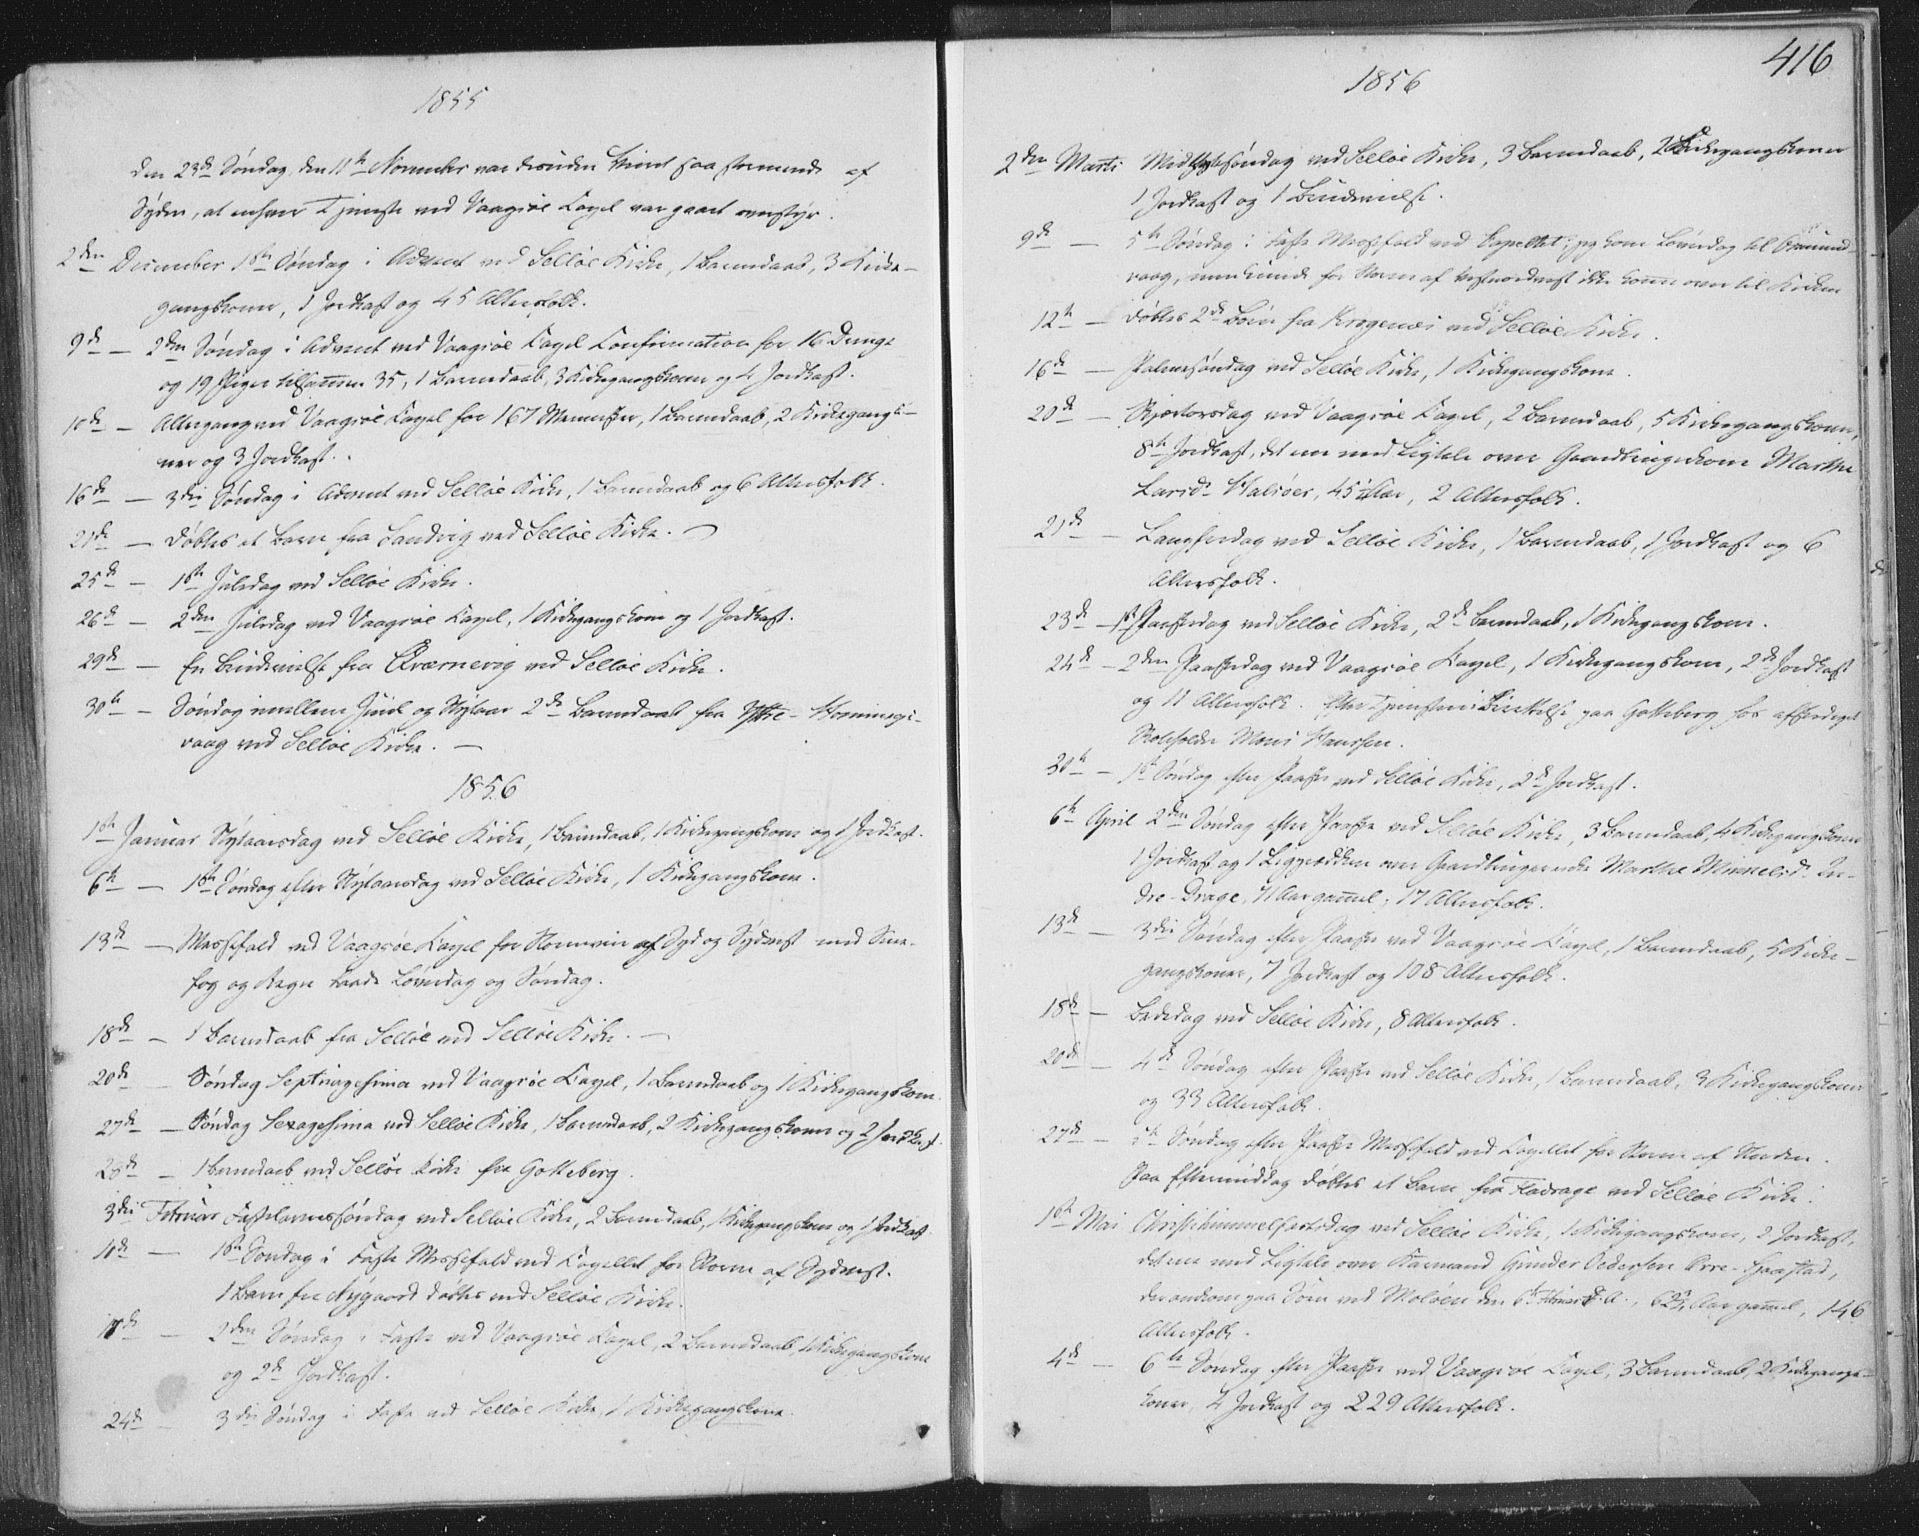 1855
den 23de Søndag den 11te November var desuden Vind saa stormende af
Syden, at enhver Tjeneste ved Vaagsøe Capel var gaaet overstyr.
2den December 1ste Søndag i Advent ved Selløe Kirke, 1 Barnedaab, 3 Kirke-
gangskoner, 1 Jordkast og 45 Altersfolk.
9de — 2den Søndag i Advent ved Vaagsøe Capel Confirmation for 16 Drenge
og 19 Piger tilsammen 35, 1 Barnedaab, 3 Kirkegangskoner og 4 Jordkast.
10de — Altergang ved Vaagsøe Capel for 167 Mennesker, 1 Barnedaab, 2 Kirkegangsko-
ner og 3 Jordkast.
16de — 3die Søndag i Advent ved Selløe Kirke, 1 Barnedaab og 6 Altersfolk.
21de — Døbtes et Barn fra Sandvig ved Selløe Kirke. —
25de — 1ste Juledag ved Selløe Kirke.
26de — 2den Juledag ved Vaagsøe Capel, 1 Kirkegangskone og 1 Jordkast.
29de — En Brudevielse fra Qværnevig ved Selløe Kirke.
30te — Søndag imellem Juul og Nytaar 2de Barnedaab fra Yttre-Hornings-
vaag ved Selløe Kirke. —
1856
1ste Januar Nytaarsdag ved Selløe Kirke, 1 Barnedaab, 1 Kirkegangskone og 1 Jordkast.
6te — 1ste Søndag efter Nytaarsdag ved Selløe Kirke, 1 Kirkegangskone.
13de — Messefald ved Vaagsøe Capel for Stormveir af Syd og Sydvest med Snee-
fog og Regn baade Løverdag og Søndag.
18de — 1 Barnedaab fra Selløe ved Selløe Kirke. —
20de — Søndag Septuagesima ved Vaagsøe Capel, 1 Barnedaab og 1 Kirkegangskone.
27de — Søndag Sexagesima ved Selløe Kirke, 1 Barnedaab, 2 Kirkegangskoner og 2 Jordkast.
28de — 1 Barnedaab ved Selløe Kirke fra Gotteberg.
3die Februar Fastelavnssøndag ved Selløe Kirke, 2 Barnedaab, 1 Kirkegangskone og 1 Jordkast
10de — 1ste Søndag i Faste Messefald ved Capellet for Storm af Sydvest.
1 Barn fra Nygaard døbtes ved Selløe Kirke.
17de — 2den Søndag i Faste ved Vaagsøe Capel, 2 Barnedaab, 1 Kirkegangskone
og 2de Jordkast.
24de — 3die Søndag i Faste ved Selløe Kirke, 1 Kirkegangskone.
416
1856
2den Marts Midfastesøndag ved Selløe Kirke, 3 Barnedaab, 2 Kirkegangskoner
1 Jordkast og 1 Brudevielse.
9de — 5te Søndag i Faste Messefald ved Capellet; jeg kom Løverdag til
vaag, men kunde for Storm af Vestnordvest ikke komme over til Kirken
12te — Døbtes 2de Børn fra Krogenæs ved Selløe Kirke.
16de — Palmesøndag ved Selløe Kirke, 1 Kirkegangskone.
20de — Skjertorsdag ved Vaagsøe Capel, 2 Barnedaab, 5 Kirkegangskoner,
8te Jordkast, det ene med Ligtale over Gaardbrugerkone Marthe
Larsdr Halsøer, 45 Aar, 2 Altersfolk.
21de — Langfredag ved Selløe Kirke, 1 Barnedaab, 1 Jordkast og 6
Altersfolk.
23de — 1ste Paaskedag ved Selløe Kirke, 2de Barnedaab, 1 Kirkegangskone.
24de — 2den Paaskedag ved Vaagsøe Capel, 1 Kirkegangskone, 2de Jordkast
og 11 Altersfolk. Efter Tjenesten Berettelse paa Gotteberg for affældiget
Skoleholder Mons Hanssen.
30te — 1ste Søndag efter Paaske ved Selløe Kirke, 2de Jordkast.
6te April 2den Søndag efter Paaske ved Selløe Kirke, 3 Barnedaab, 4 Kirkegangskoner
1 Jordkast og 1 Ligprædiken over Gaardbrugerenke Marthe Mimmelsdr In-
dre-Drage, 71 Aar gammel; 17 Altersfolk.
13de — 3die Søndag efter Paaske ved Vaagsøe Capel, 1 Barnedaab, 5 Kirke-
gangskoner, 7 Jordkast og 108 Altersfolk.
18de — Bededag ved Selløe Kirke, 8 Altersfolk.
20de — 4de Søndag efter Paaske ved Selløe Kirke, 1 Barnedaab, 3 Kirkegangskoner
og 33 Altersfolk.
27de — 5te Søndag efter Paaske Messefald ved Capellet for Storm af Norden.
Paa Eftermiddag døbtes et Barn fra Fladrage ved Selløe Kirke.
1ste Mai Christi himmelfartsdag ved Selløe Kirke, 1 Kirkegangskone, 2 Jordkast,
det ene med Ligtale over Kaarmand Gunder Pedersen Øvre-Hjaastad,
der omkom paa Søen ved Moløen den 6te Februar d. A., 62 1/2 Aar gammel, 146
Altersfolk.
4de — 6te Søndag efter Paaske ved Vaagsøe Capel, 3 Barnedaab, 2 Kirkegangs-
koner, 4 Jordkast og 229 Altersfolk.